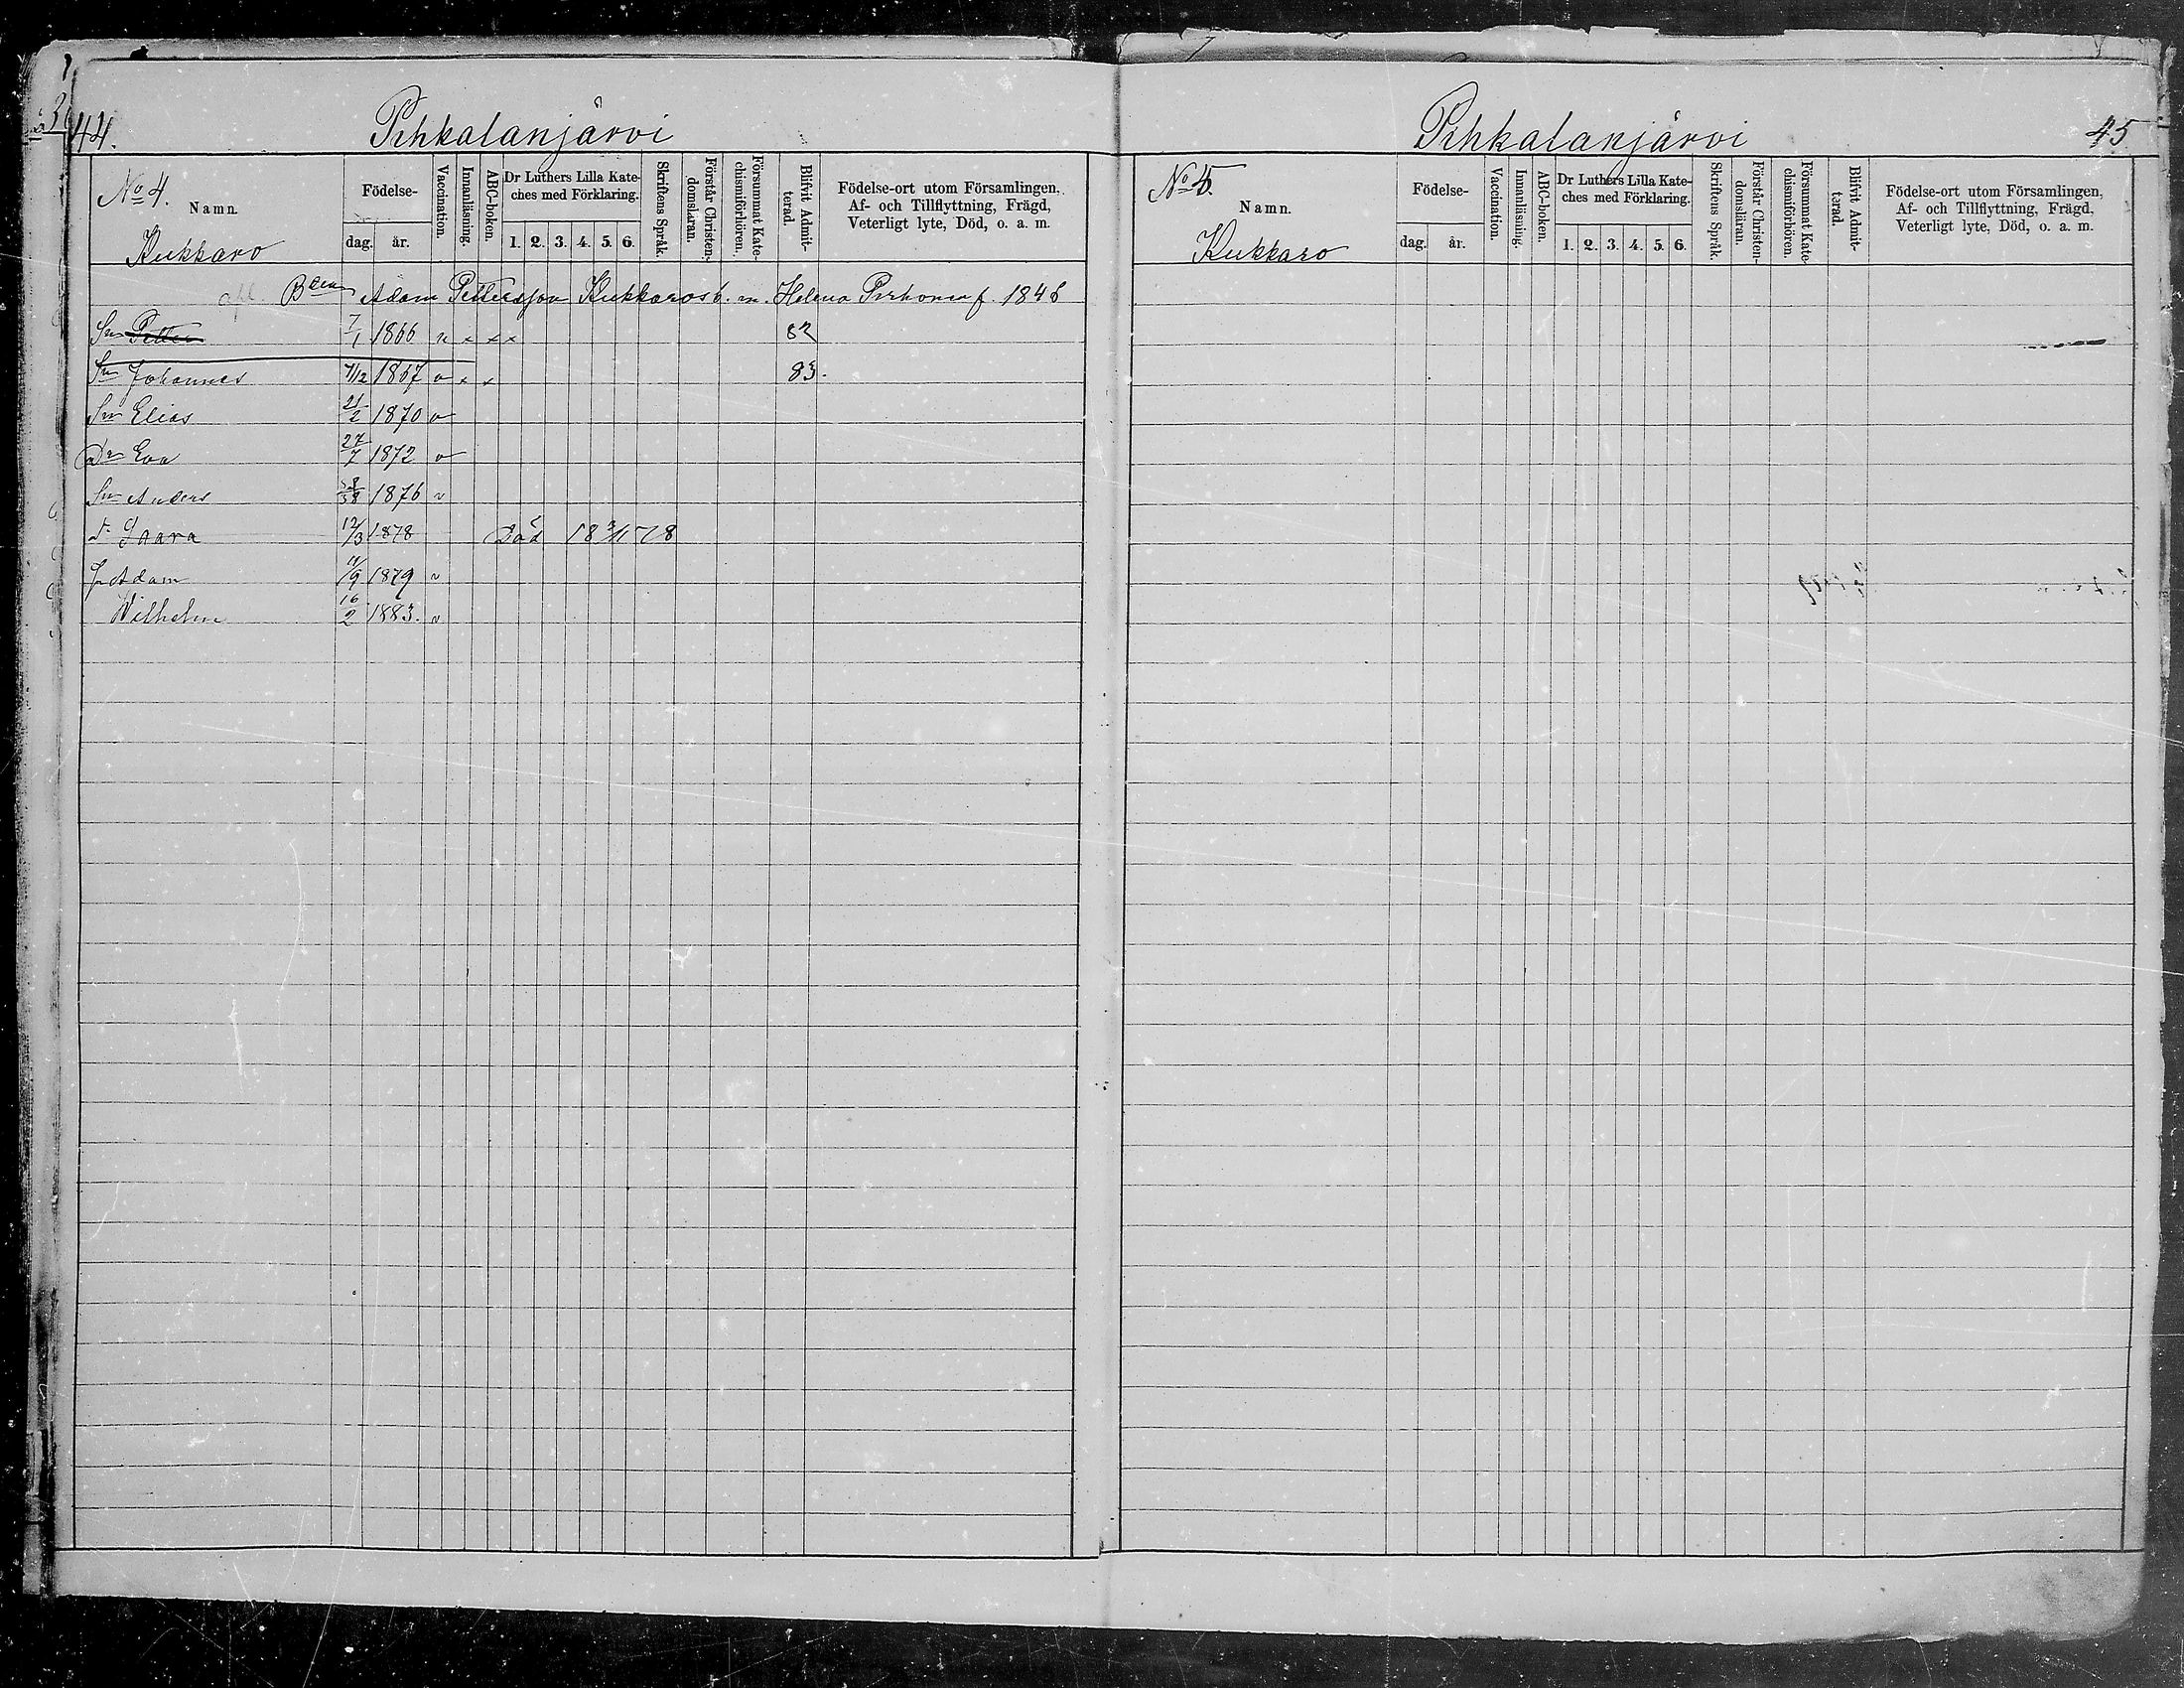 44.
Pihkalanjärvi
No 4.
Namn.
Kukkaro
Födelse-
dag. år.
Vaccination.
Innanläsning.
ABC-boken.
Dr Luthers Lilla Kate-
ches med Förklaring.
1. 2. 3. 4. 5. 6.
Skriftens Språk.
Förstår Christen-
domsläran.
Försummat Kate-
chismiförhören.
Blifvit Admit-
terad.
Födelse-ort utom Församlingen,
Af- och Tillflyttning, Frägd,
Veterligt lyte, Död, o. a. m.
Bden Adam Pettersson Kukkaros b. m. Helena Pirhonen f. 1846
Sn Petter 7/1 1866 x x x 82
Sn Johannes 7/12 1867 v x x 83.
Sn Elias 21/2 1870 v
Dr Eva 27/7 1872 v
Sn Anders 1876 v
D. Saara 12/3 1878 Död 18 3/11 78
Sn Adam 11/9 1879 v
Wilhelm 16/2 1883. v
Pihkalanjärvi
45
No 5.
Namn.
Kukkaro
Födelse-
dag. år.
Vaccination.
Innanläsning.
ABC-boken.
Dr Luthers Lilla Kate-
ches med Förklaring.
1. 2. 3. 4. 5. 6.
Skriftens Språk.
Förstår Christen-
domsläran.
Försummat Kate-
chismiförhören.
Blifvit Admit-
terad.
Födelse-ort utom Församlingen,
Af- och Tillflyttning, Frägd,
Veterligt lyte, Död, o. a. m.